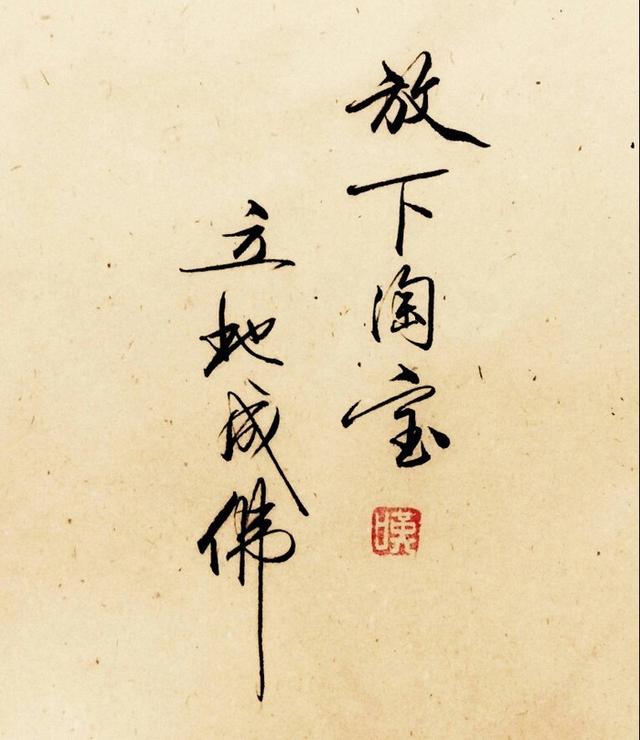 放下淘宝
立地成佛